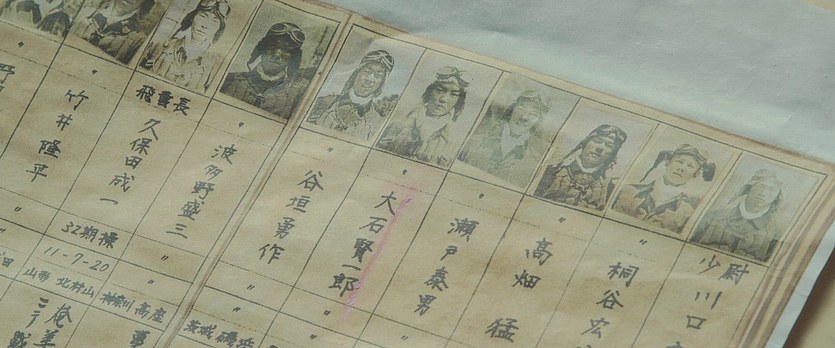 少尉
川口
〃
桐谷宏
〃
高畑 猛
〃
瀬戸泰男
〃
大石賢一郎
〃
谷垣勇作
〃
波多野盛三
飛曹長
久保田成一
〃
竹井隆平
野
〃
〃
〃
〃
〃
茨城 磯浜
〃
32期操
11-7-20
神奈川 高座
山形 北村山